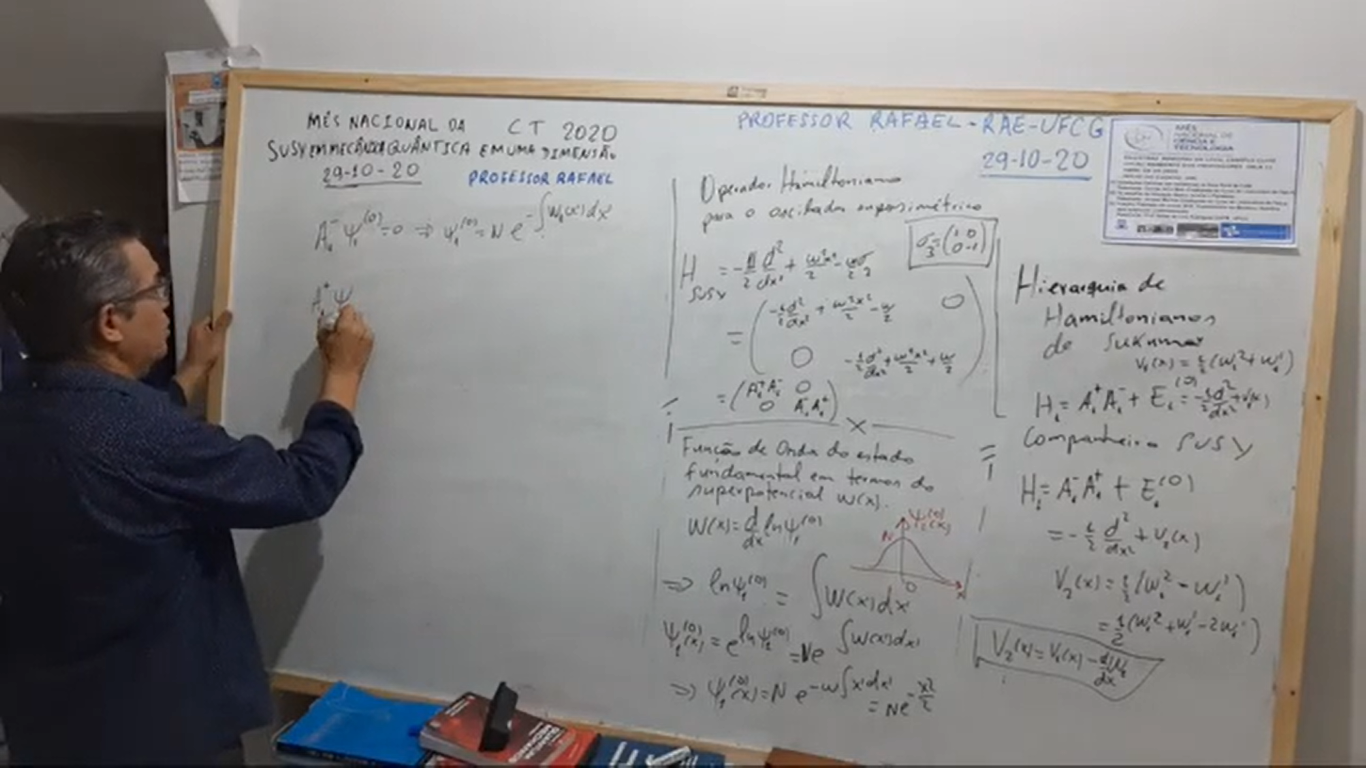 MÊS NACIONAL DA CT 2020
SUSY EM MECÂNICA QUÂNTICA EM UMA DIMENSÃO
29-10-20 PROFESSOR RAFAEL
A₁⁻ ψ₁⁽⁰⁾ = 0 ⇒ ψ₁⁽⁰⁾ = N e^{-∫W₁(x')dx'}
A₁⁺ ψ
PROFESSOR RAFAEL-RAE-UFCG
29-10-20
Operador Hamiltoniano
para o oscilador supersimétrico
σ₃=(1 0
0 -1)
H SUSY = -1/2 d²/dx² + ω²x²/2 - ω/2 σ₃
= ( -1/2 d²/dx² + ω²x²/2 - ω/2 0
0 -1/2 d²/dx² + ω²x²/2 + ω/2 )
= ( A₁⁺A₁⁻ 0
0 A₁⁻A₁⁺ )
Função de Onda do estado
fundamental em termos do
superpotencial W(x).
W(x) = d/dx ln ψ₁⁽⁰⁾
ψ₁⁽⁰⁾(x)
N
0
x
⇒ ln ψ₁⁽⁰⁾ = ∫W(x)dx'
ψ₁⁽⁰⁾(x) = e^{ln ψ₁⁽⁰⁾} = Ne^{∫W(x)dx'}
⇒ ψ₁⁽⁰⁾(x) = N e^{-ω∫x'dx'}
= Ne^{-x²/2}
MÊS
NACIONAL DE
CIÊNCIA E
TECNOLOGIA
Hierarquia de
Hamiltonianos
de Sukumar
V₁(x) = 1/2 (W₁² + W₁')
H₁ = A₁⁺A₁⁻ + E₁⁽⁰⁾ = -1/2 d²/dx² + V₁(x)
Companheiro SUSY
H₂ = A₁⁻A₁⁺ + E₁⁽⁰⁾
= -1/2 d²/dx² + V₂(x)
V₂(x) = 1/2 (W₁² - W₁')
= 1/2 (W₁² + W₁' - 2W₁')
V₂(x) = V₁(x) - dW₁/dx